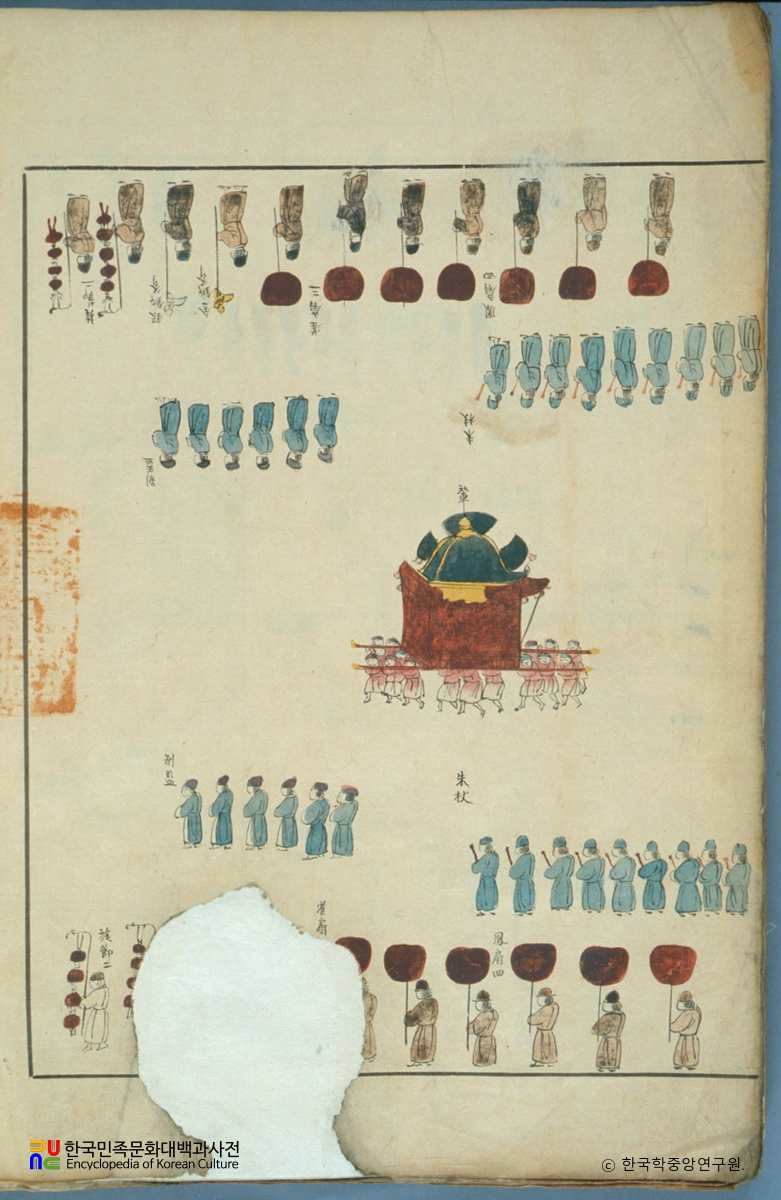 旌節二
銀鉞斧
金鉞斧
雀扇三
鳳扇四
朱杖
別監
輦
別監
朱杖
雀扇
鳳扇四
旌節二
한국민족문화대백과사전
Encyclopedia of Korean Culture
ⓒ 한국학중앙연구원.